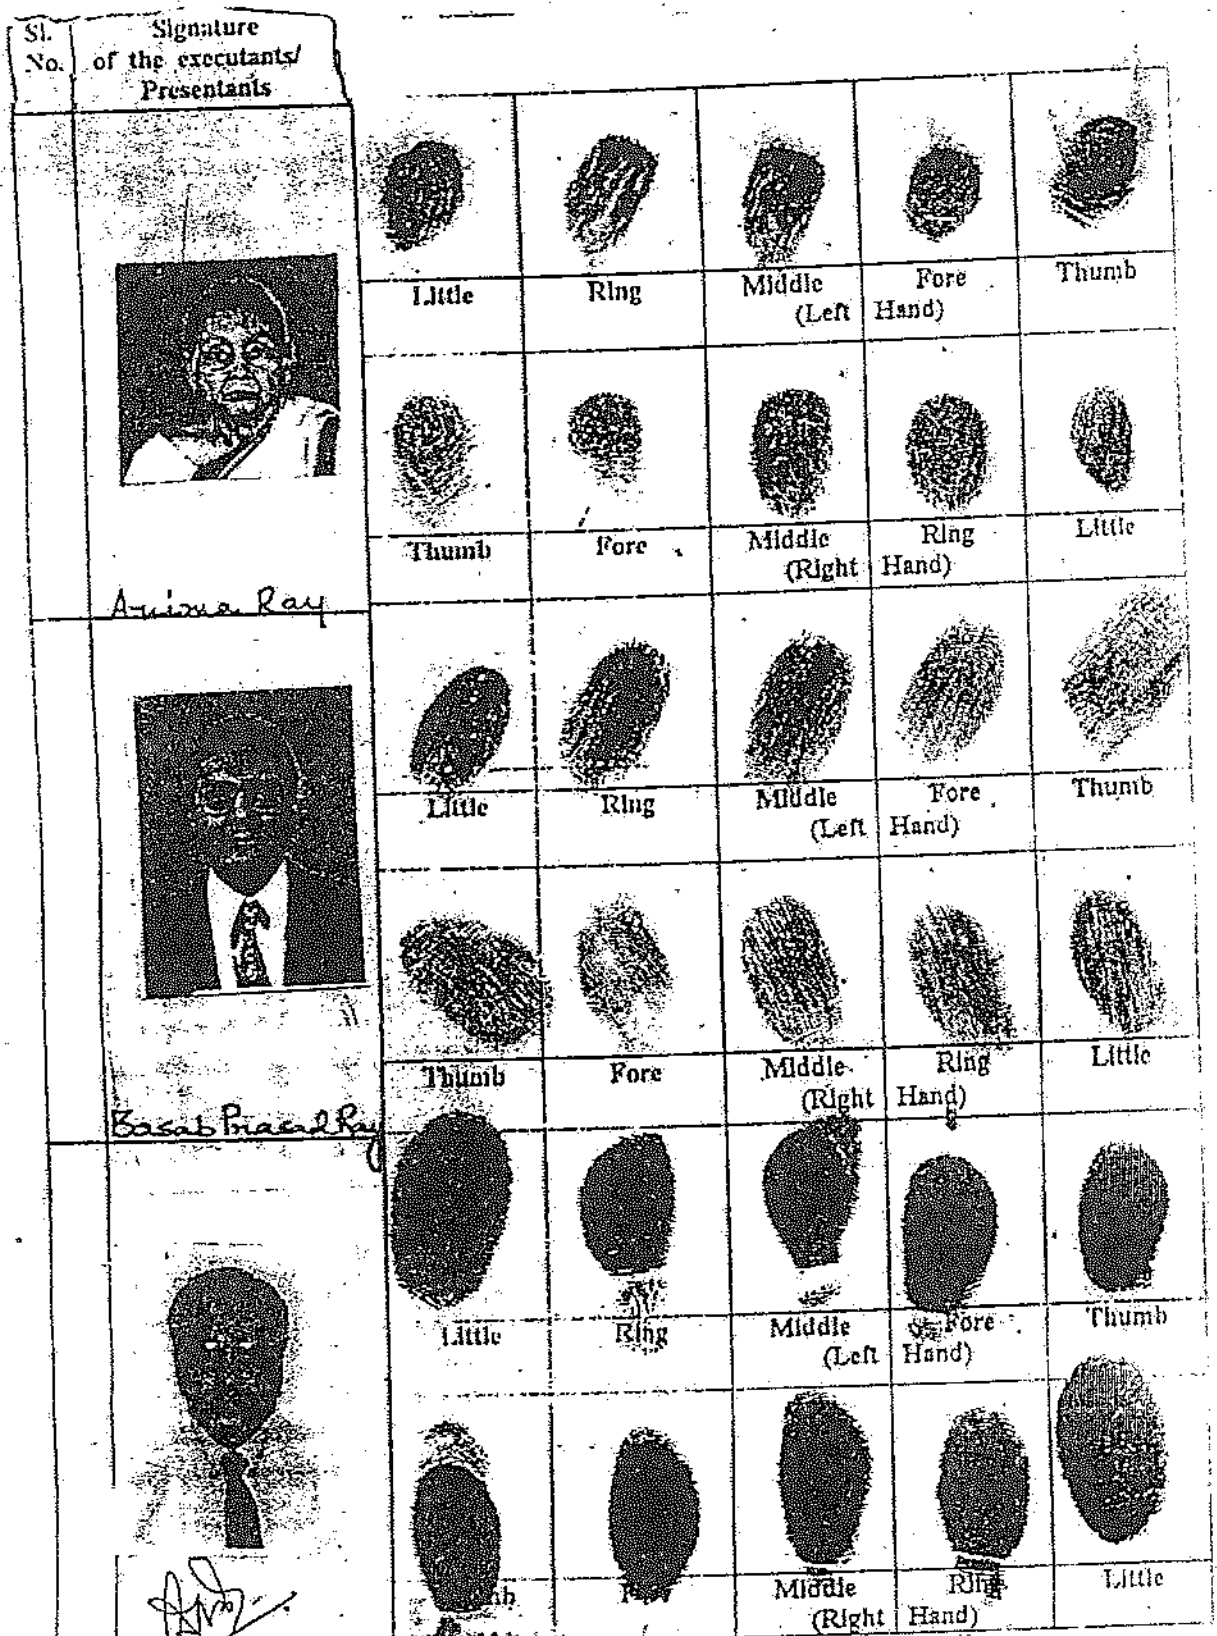 Sl.
No.
Signature
of the executants/
Presentants
Little Ring Middle Fore Thumb
(Left Hand)
Thumb Fore Middle Ring Little
(Right Hand)
Anima Ray
Little Ring Middle Fore Thumb
(Left Hand)
Thumb Fore Middle Ring Little
(Right Hand)
Basab Prasad Ray
Little Ring Middle Fore Thumb
(Left Hand)
Middle Ring Little
(Right Hand)